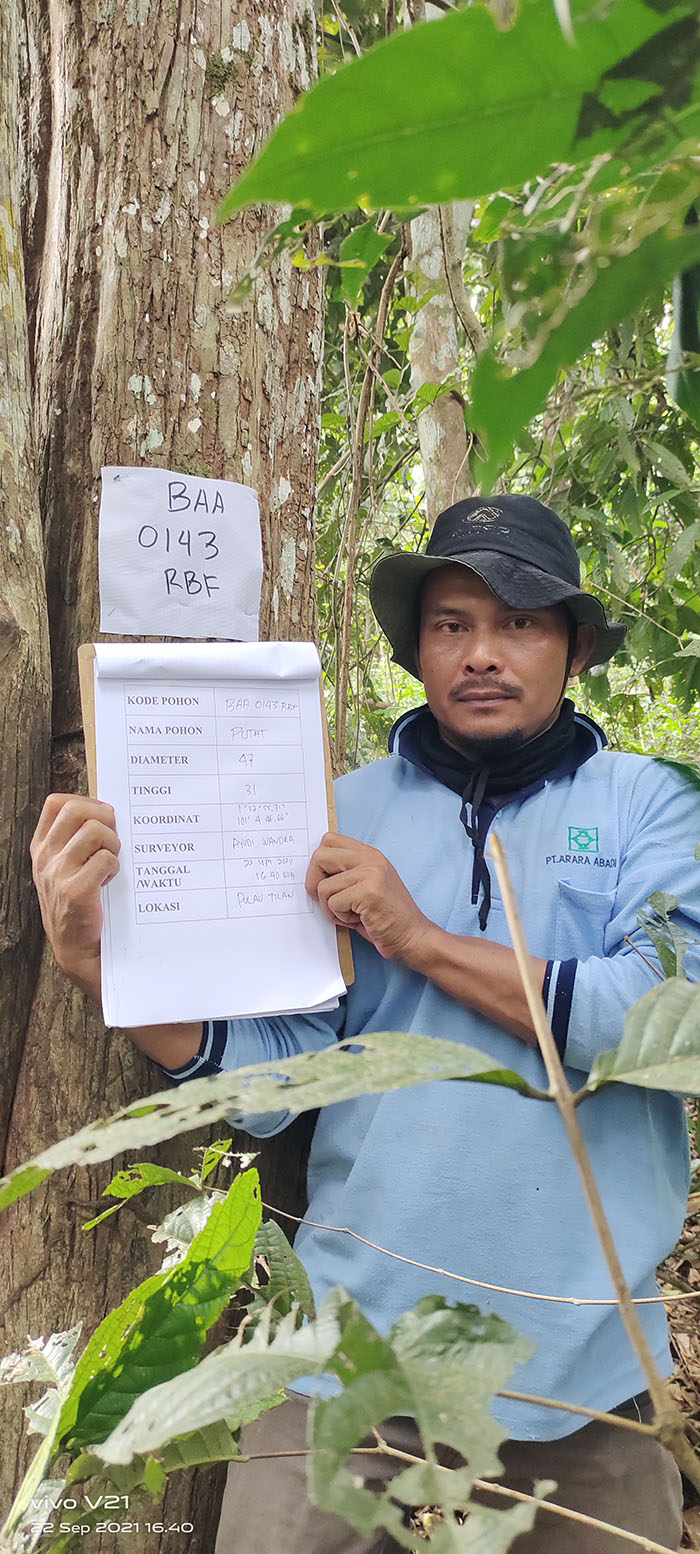 BAA
0143
RBF
KODE POHON BAA 0143 RBF
NAMA POHON PUTAT
DIAMETER 47
TINGGI 31
KOORDINAT 1° 12' 55,71" 101° 4' 46,66"
SURVEYOR AYUDI WANDRA
TANGGAL /WAKTU 22 SEPT 2021 16.40 WIB
LOKASI PULAU TILAN
PT.ARARA ABADI
vivo V21
22 Sep 2021 16.40